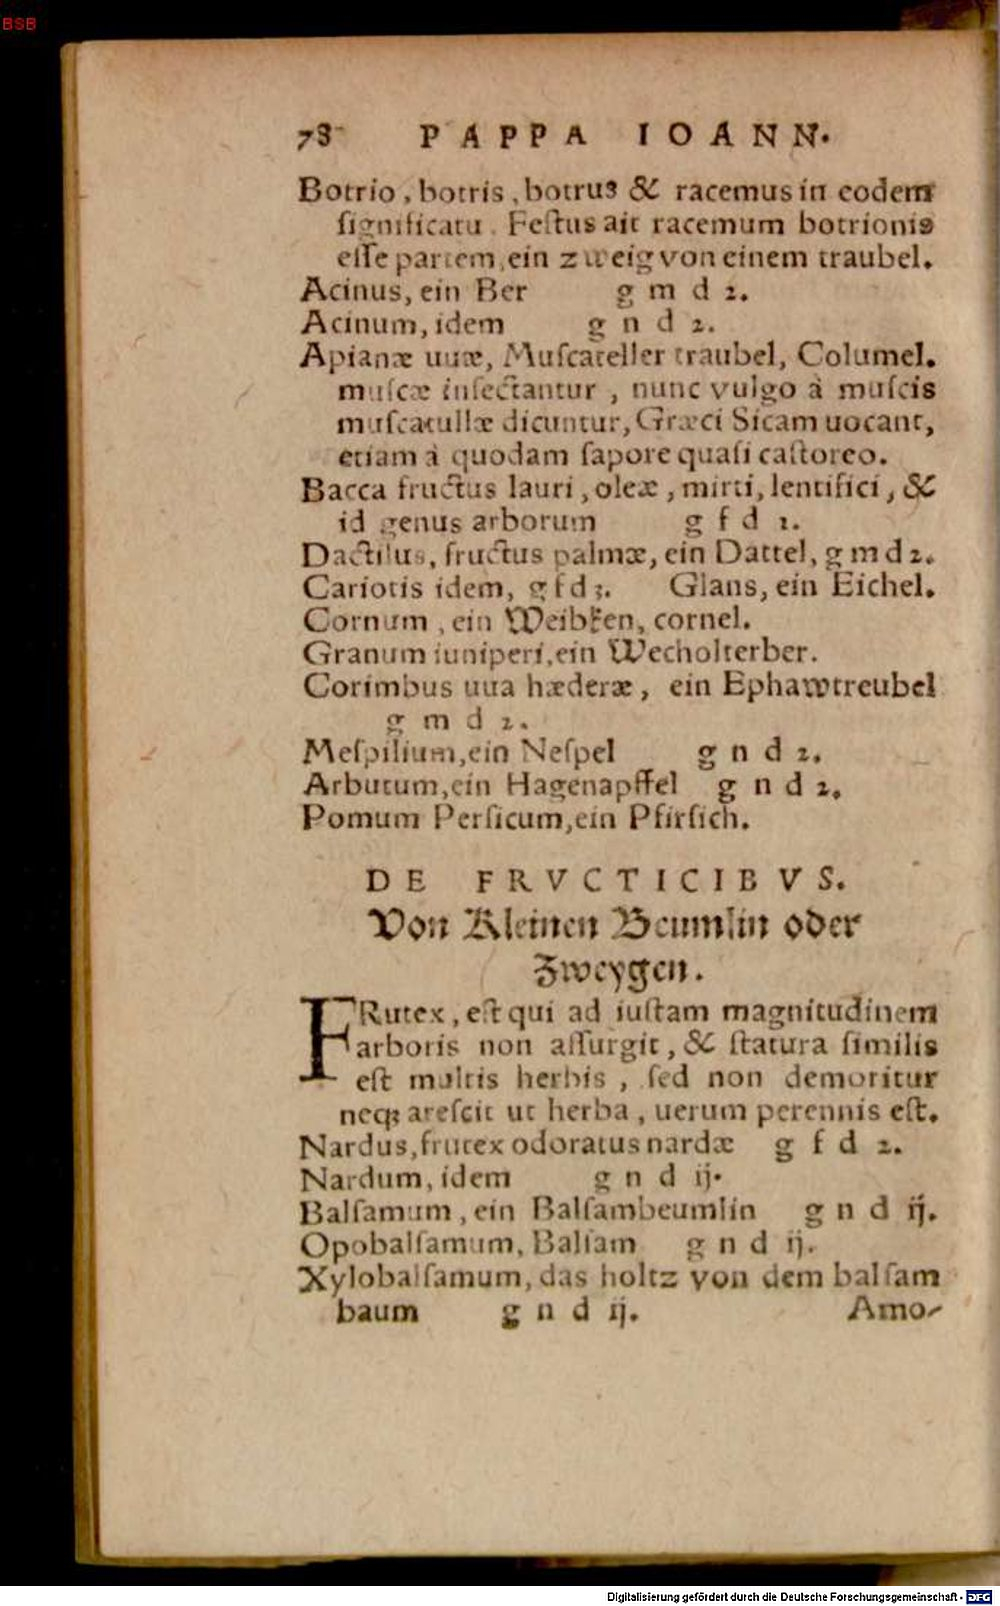 BSB
78 PAPPA IOANN.
Botrio, botris, botrus & racemus in eodem
ſignificatu. Feſtus ait racemum botrionis
eſſe partem, ein zweig von einem traubel.
Acinus, ein Ber g m d 2.
Acinum, idem g n d 2.
Apianæ uuæ, Muſcateller traubel, Columel.
muſcæ inſectantur, nunc vulgo à muſcis
muſcatullæ dicuntur, Græci Sicam uocant,
etiam à quodam ſapore quaſi caſtoreo.
Bacca fructus lauri, oleæ, mirti, lentiſici, &
id genus arborum g f d 1.
Dactilus, fructus palmæ, ein Dattel, g m d 2.
Cariotis idem, g f d 3. Glans, ein Eichel.
Cornum, ein Weibken, cornel.
Granum iuniperi, ein Wecholterber.
Corimbus uua hæderæ, ein Ephawtreubel
g m d 2.
Meſpilium, ein Neſpel g n d 2.
Arbutum, ein Hagenapffel g n d 2.
Pomum Perſicum, ein Pfirſich.
DE FRVCTICIBVS.
Von Kleinen Beumlin oder
Zweygen.
FRutex, eſt qui ad iuſtam magnitudinem
arboris non aſſurgit, & ſtatura ſimilis
eſt multis herbis, ſed non demoritur
neqꝫ areſcit ut herba, uerum perennis eſt.
Nardus, frutex odoratus nardæ g f d 2.
Nardum, idem g n d ij.
Balſamum, ein Balſambeumlin g n d ij.
Opobalſamum, Balſam g n d ij.
Xylobalſamum, das holtz von dem balſam
baum g n d ij. Amo-
Digitalisierung gefördert durch die Deutsche Forschungsgemeinschaft - DFG